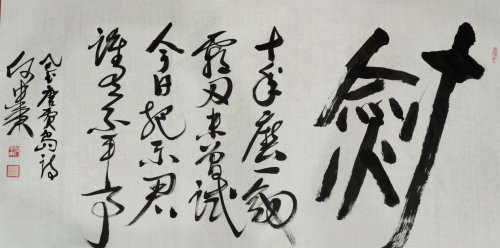 劍
十年磨一劍
霜刃未曾試
今日把示君
誰有不平事
唐賈島詩